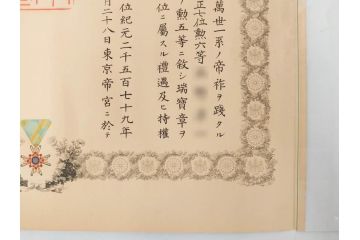 萬世一系ノ帝祚ヲ踐タル
正七位勲六等
ノ勲五等ニ敘シ瑞寶章ヲ
位ニ屬スル禮遇及ヒ特權
位紀元二千五百七十九年
月二十八日東京帝宮ニ於テ